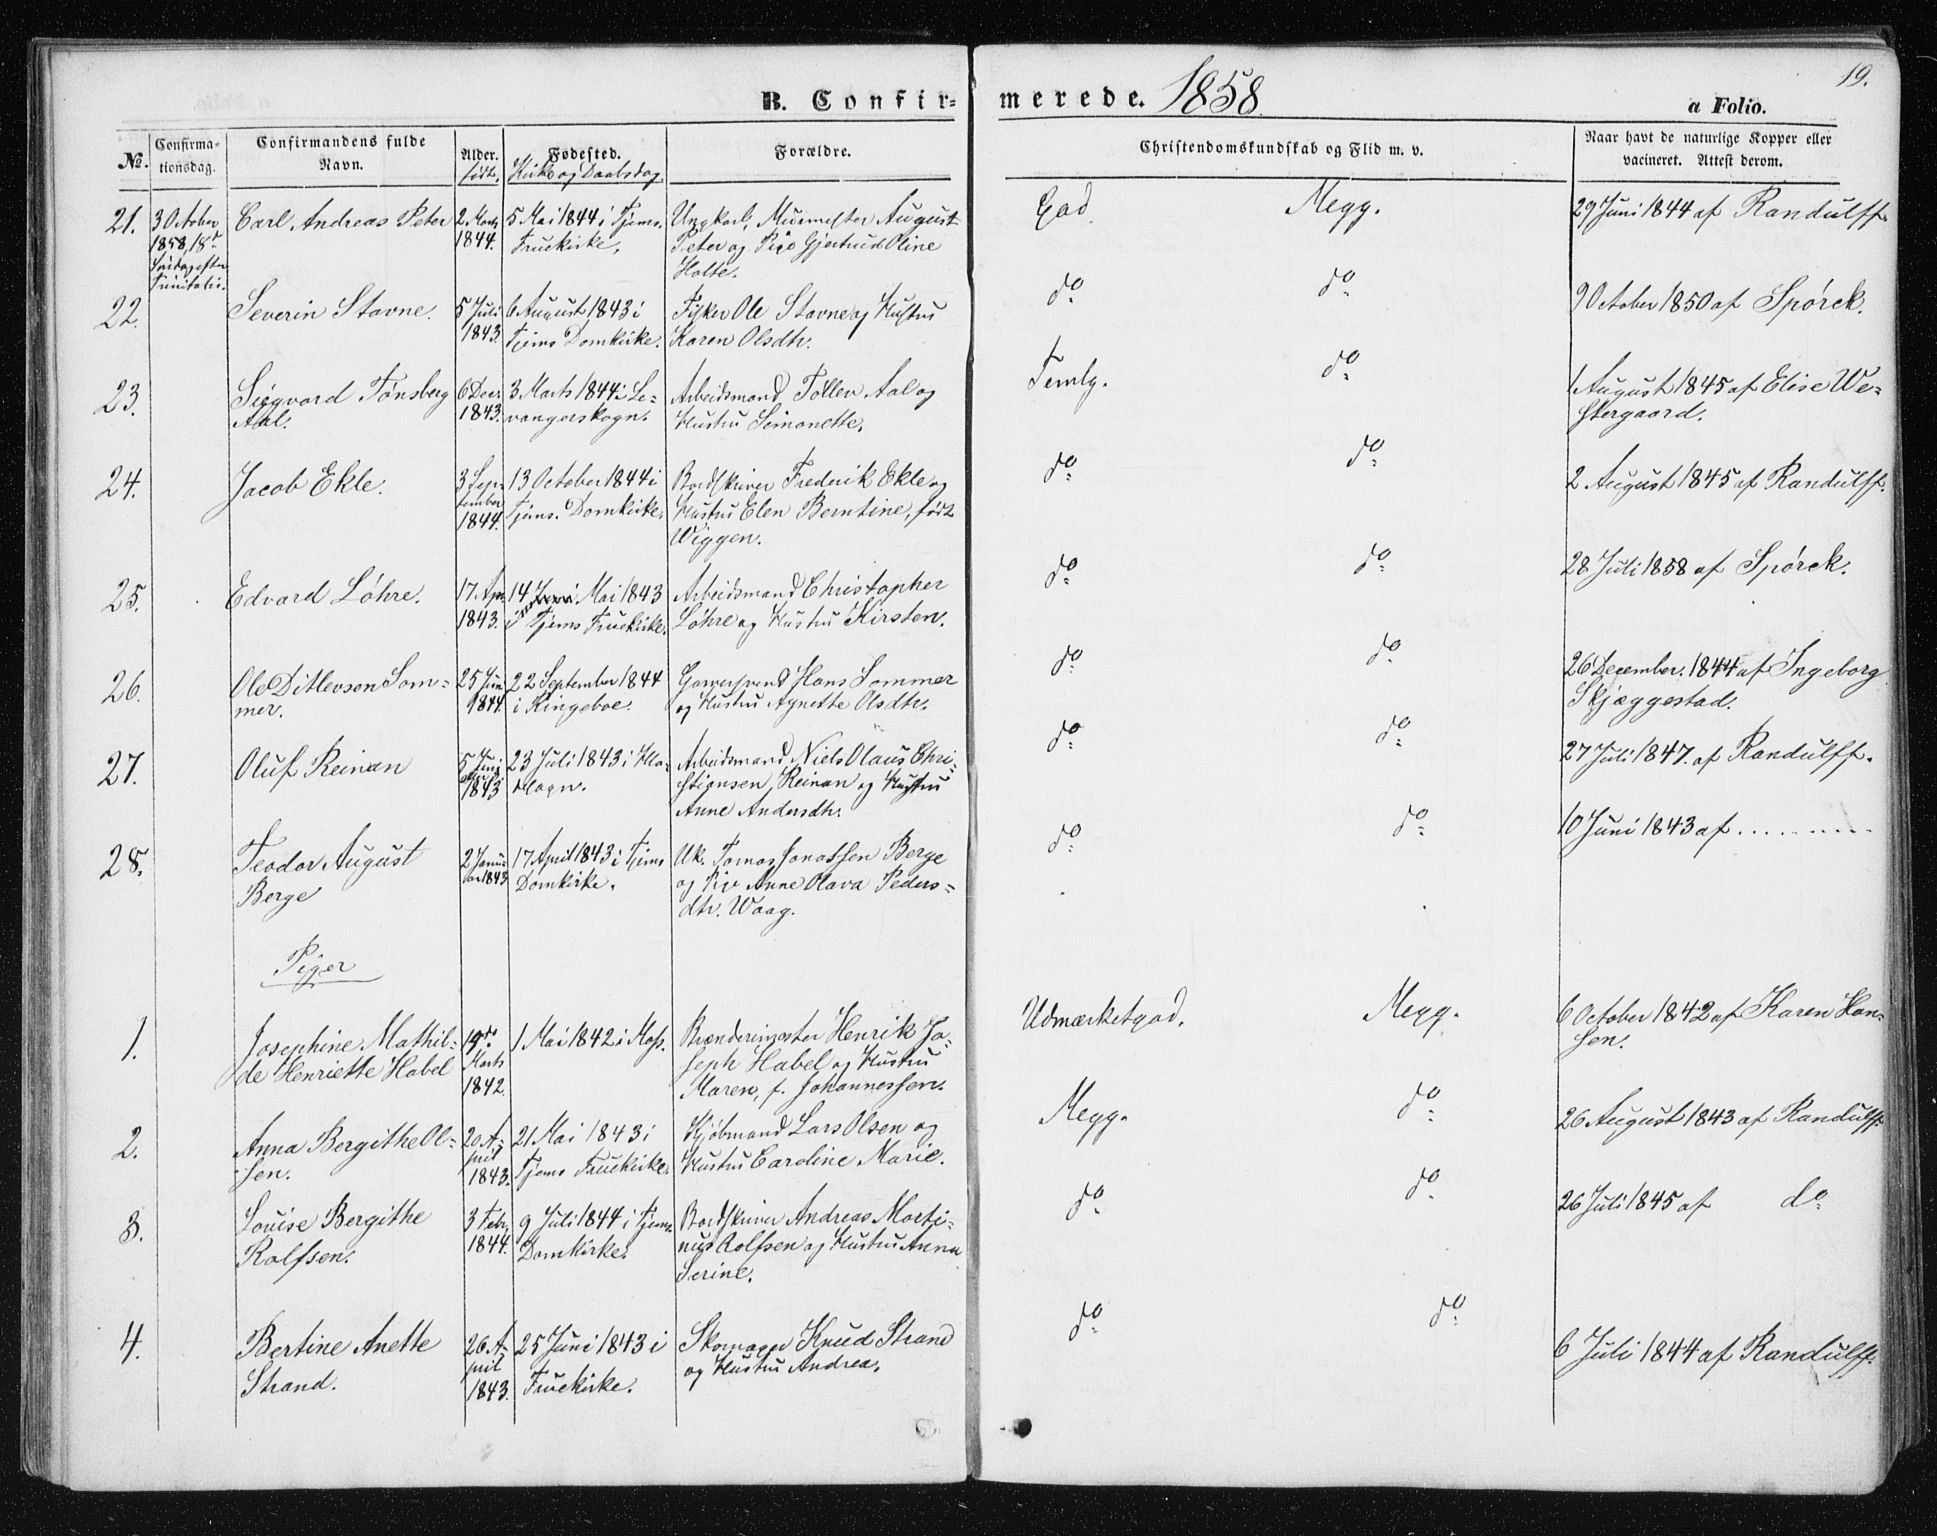 19.
B. Confir-
merede. 1858.
a Folio.
No.
Confirma-
tionsdag.
Confirmandens fulde
Navn.
Alder.
født.
Fødested.
Kirke og Daabsdag.
Forældre.
Christendomskundskab og Flid m. v.
Naar havt de naturlige Kopper eller
vacineret. Attest derom.
21. 3 October
1858, 18de
Søndag efter
Trinitatis.
Carl Andreas Peter
2 Marts
1844.
5 Mai 1844 i Tjems.
Fruekirke,
Ungkarl, Murmester August
Peter og Pige Gjertrud Oline
Holte.
God
Megg.
29 Juni 1844 af Randulff.
22.
Severin Stavne.
5 Juli
1843.
6 August 1843 i
Tjems Domkirke.
Fisker Ole Stavne og Hustru
Karen Olsdtr.
do
do
9 October 1850 af Spørck.
23.
Sigvard Tønsberg
Aal.
6 Decr.
1843.
3 Marts 1844 i Le-
vangerskogn.
Arbeidsmand Tollev Aal og
Hustru Simonette.
Temlg.
do
1 August 1845 af Elise We-
stergaard.
24.
Jacob Ekle.
3 Sep-
tember
1844.
13 October 1844 i
Tjems. Domkirke.
Bordskriver Frederik Ekle og
Hustru Elen Berntine, født
Wiggen.
do
do
2 August 1845 af Randulff.
25.
Edvard Løhre.
17. Apr.
1843.
14 Mai 1843
i Tjems Fruekirke.
Arbeidsmand Christopher
Løhre og Hustru Kirsten.
do
do
28 Juli 1858 af Spørck.
26.
Ole Ditlevsen Som-
mer.
25 Juni
1844.
22 September 1844
i Ringeboe.
Garversvend Hans Sommer
og Hustru Agnette Olsdtr.
do
do
26 December. 1844 af Ingeborg
Skjæggestad.
27.
Oluf Reinan
5 Juni
1843
23 Juli 1843 i
Arbeidsmand Niels Olaus Chri-
stiansen Reinan og Hustru
Anne Andersdtr.
do
do
27 Juli 1847. af Randulff.
28.
Teodor August
Berge
2 Janu-
ar 1843
17 April 1843 i Tjems
Domkirke.
Uk. Tomas Jonassen Berge
og Pige Anne Olava Peders-
dtr. Waag.
do
do
10 Juni 1843 af ..........
Piger
1.
Josephine Mathil-
de Henriette Habel
Marts
1842.
1 Mai 1842 i Moss.
Brænderimester Henrik Jo-
seph Habel og Hustru
Maren, f. Johannessen.
Udmærketgod.
Megg.
6 October 1842 af Karen Han-
sen.
2.
Anna Bergithe Ol-
sen.
20 A-
pril
1843.
21 Mai 1843 i
Tjems Fruekirke.
Kjøbmand Lars Olsen og
Hustru Caroline Marie.
Megg.
do
26 August 1843 af Randulff
3.
Louise Bergithe
Rolfsen.
3 Febr.
1844.
9 Juli 1844 i Tjems.
Domkirke.
Bordskriver Andreas Marti-
nus Rolfsen og Hustru Anna
Serine.
do
do
26 Juli 1845 af do
4.
Bertine Anette
Strand.
26 A-
pril
1843.
25 Juni 1843 i
Fruekirke.
Skomager Knud Strand
og Hustru Andrea.
do
do
6 Juli 1844 af Randulff.